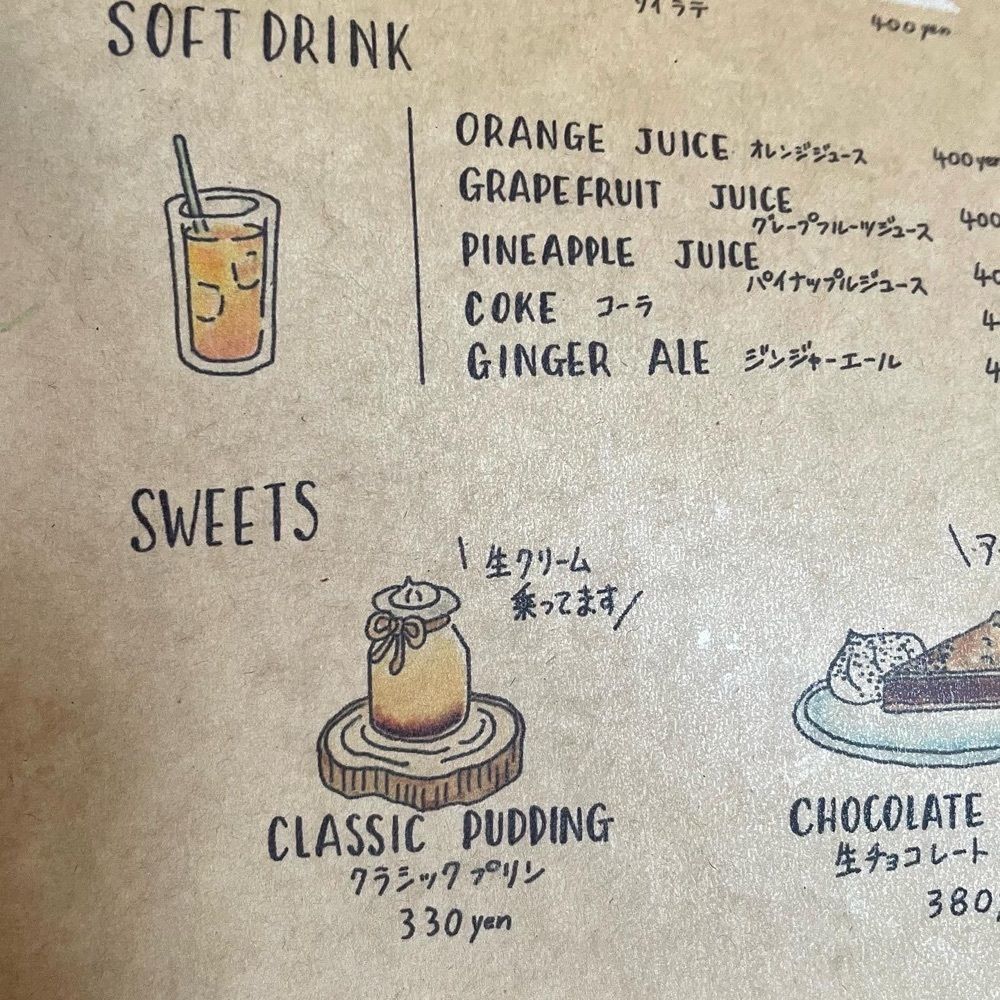 400yen
SOFT DRINK
ORANGE JUICE オレンジジュース 400yen
GRAPEFRUIT JUICE グレープフルーツジュース 400
PINEAPPLE JUICE パイナップルジュース
COKE コーラ
GINGER ALE ジンジャーエール
SWEETS
\ 生クリーム
乗ってます/
CLASSIC PUDDING
クラシックプリン
330yen
CHOCOLATE
生チョコレート
380